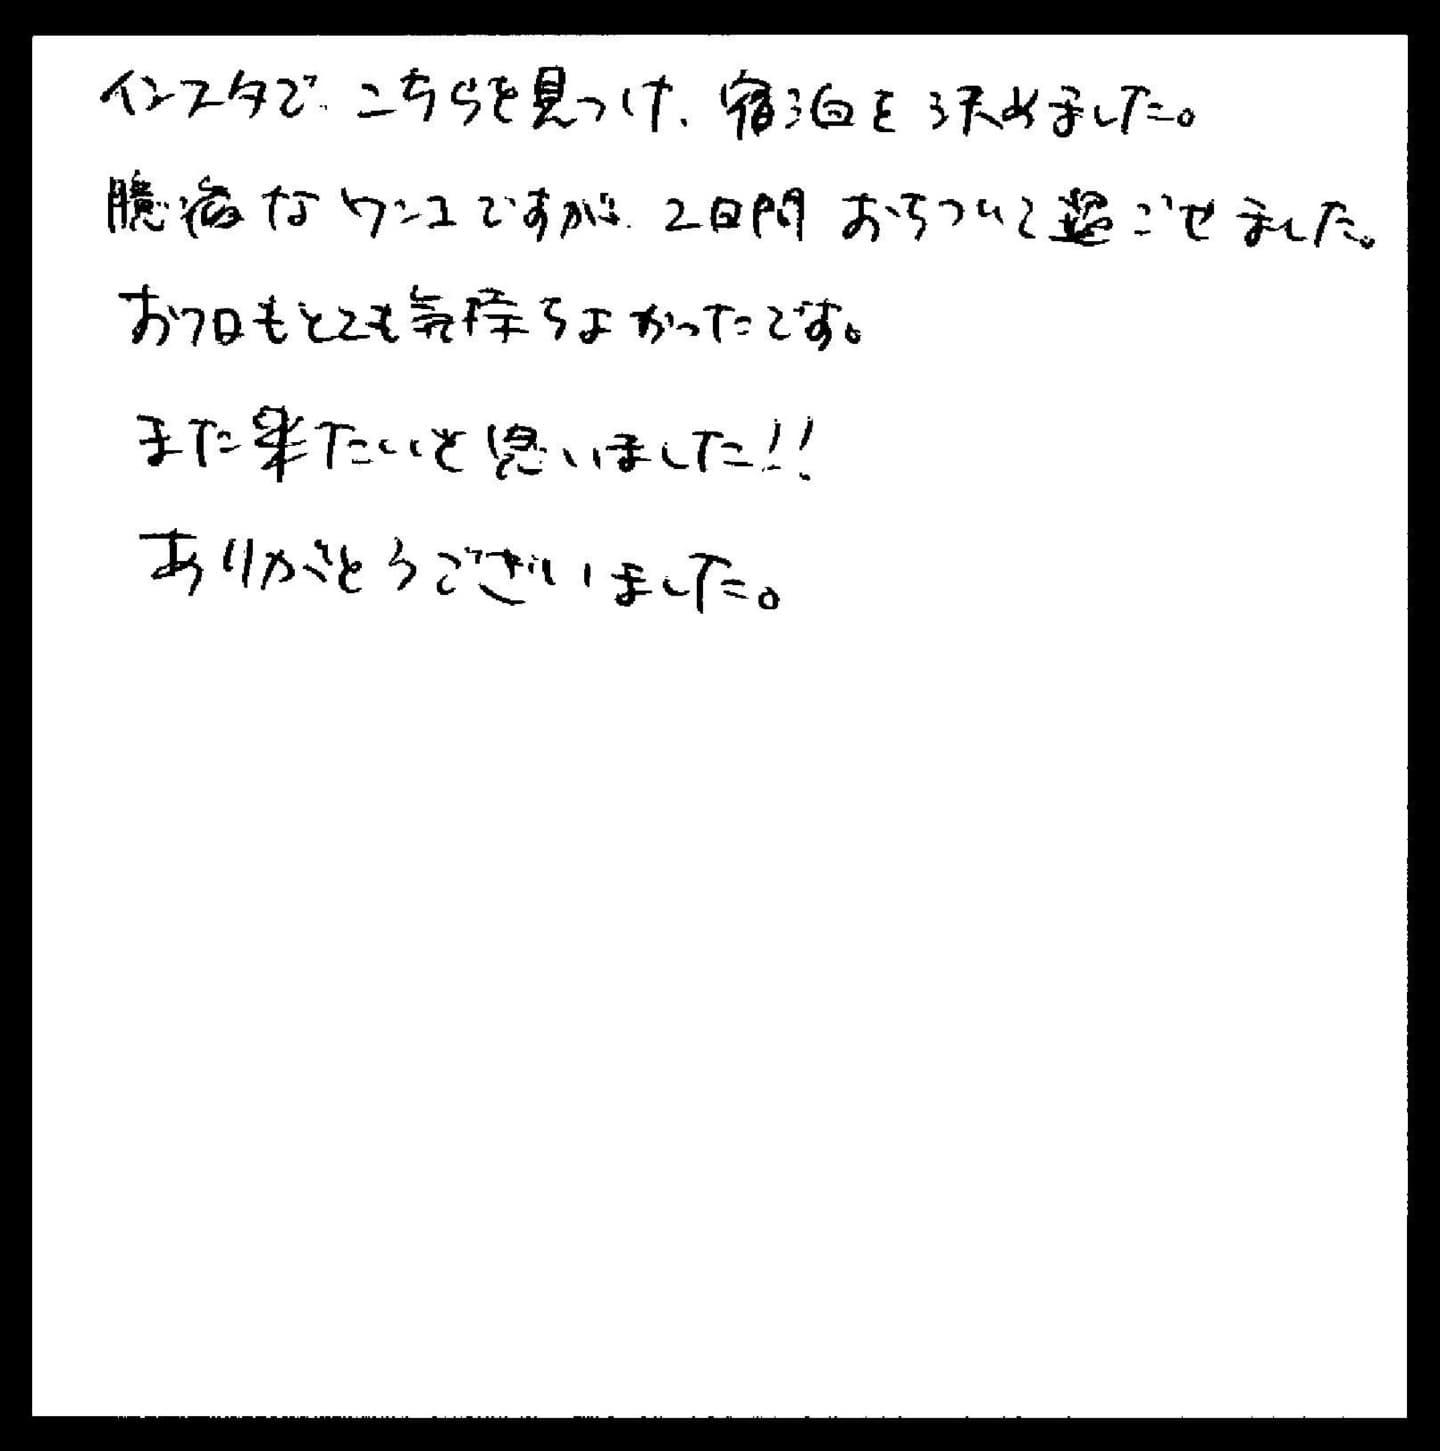 インスタで、こちらを見つけ、宿泊を決めました。
臆病なワンコですが、2日間おちついて過ごせました。
お風呂もとても気持ちよかったです。
また来たいと思いました!!
ありがとうございました。